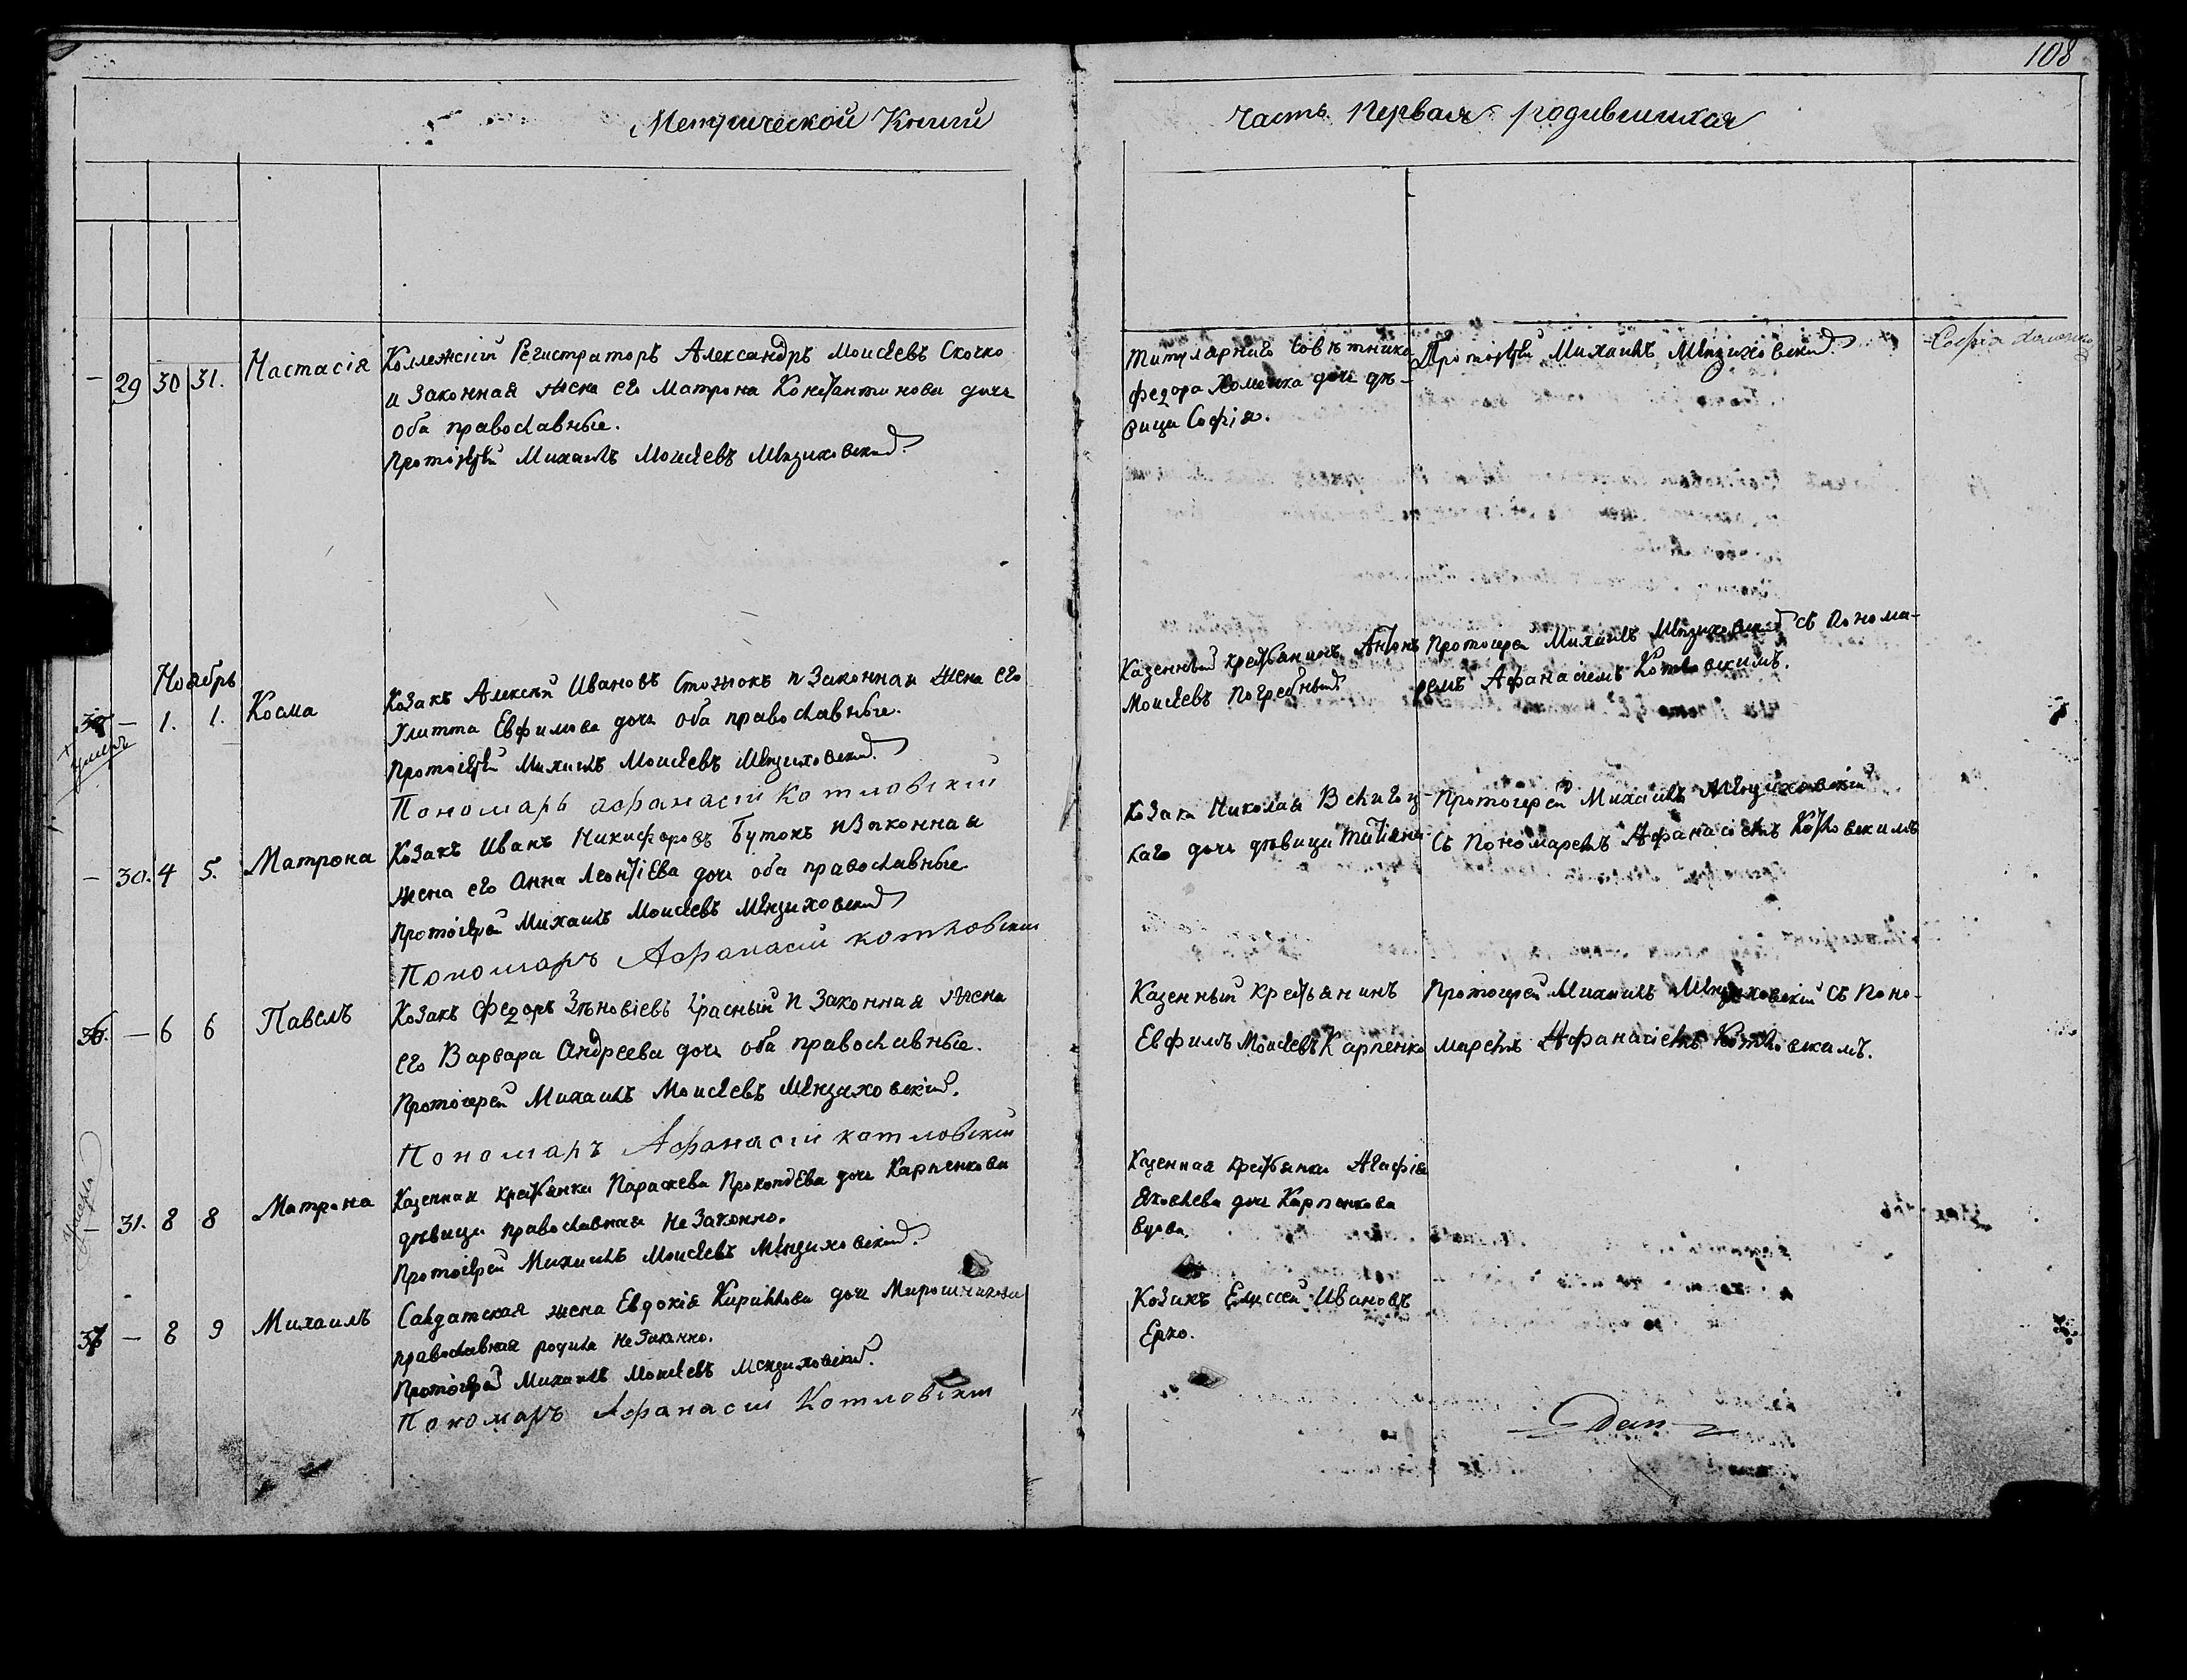 108
Метрической Книги
Часть Первая родившихся
— 29 30 31. Настасія
Коллежскій Регистраторъ Александръ Моисѣевъ Скочко
и Законная жена его Матрона Константинова дочь
оба православные.
Протоіерей Михаилъ Моисѣевъ
Титулярнаго Совѣтника
Федора Хоменка дочь дѣ-
вица Софія.
Протоіерей Михаилъ
Софія
Ноябрь
— 1. 1. Косма
умеръ
Козакъ Алексѣй Ивановъ Стожокъ и Законная жена его
Улитта Евфимова дочь оба православные.
Протоіерей Михаилъ Моисѣевъ
Пономарь Афанасій Котловскій
Казенный крестьянинъ Антонъ
Моисѣевъ Погребный
Протоіерей Михаилъ съ Понома-
ремъ Афанасіемъ Котловскимъ.
— 30. 4 5. Матрона
Козакъ Иванъ Никифоровъ Бутокъ и Законная
жена его Анна Леонтіева дочь оба православные
Протоіерей Михаилъ Моисѣевъ
Пономаръ Афанасій Котловскій
Козака Николая
каго дочь дѣвица Татіяна
Протоіерей Михаилъ
Съ Пономаремъ Афанасіемъ Котловскимъ
— 6 6 Павелъ
Козакъ Федоръ Зѣновіевъ Красный и Законная жена
его Варвара Андреева дочь оба православные.
Протоіерей Михаилъ Моисѣевъ
Пономаръ Афанасій Котловскій
Казенный Крестьянинъ
Евфимъ Моисѣевъ Карпенко
Протоіерей Михаилъ съ Поно-
маремъ Афанасіемъ Котловскимъ.
— 31. 8 8 Матрона
Казенная крестьянка Параскева Прокопіева дочь Карпенкова
дѣвица православная не Законно.
Протоіерей Михаилъ Моисѣевъ
Казенная крестьянка Агафія
Яковлева дочь Карпенкова
вдова.
— 8 9 Михаилъ
Салдатская жена Евдокія Кириллова дочь Мирошникова
православная родила не Законно.
Протоіерей Михаилъ Моисѣевъ
Пономаръ Афанасій Котловскій
Козакъ Елисей Ивановъ
Ерко.